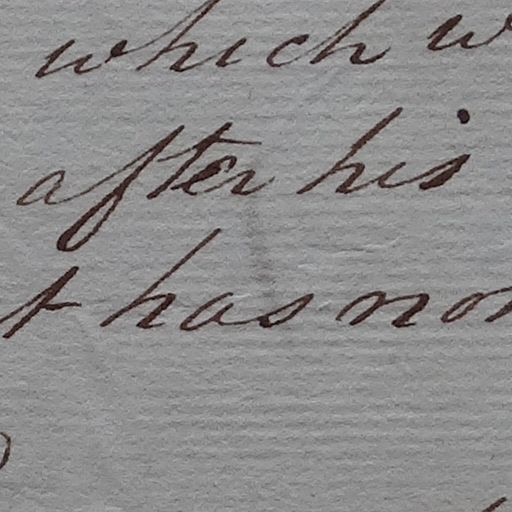 which w
after his
t has no